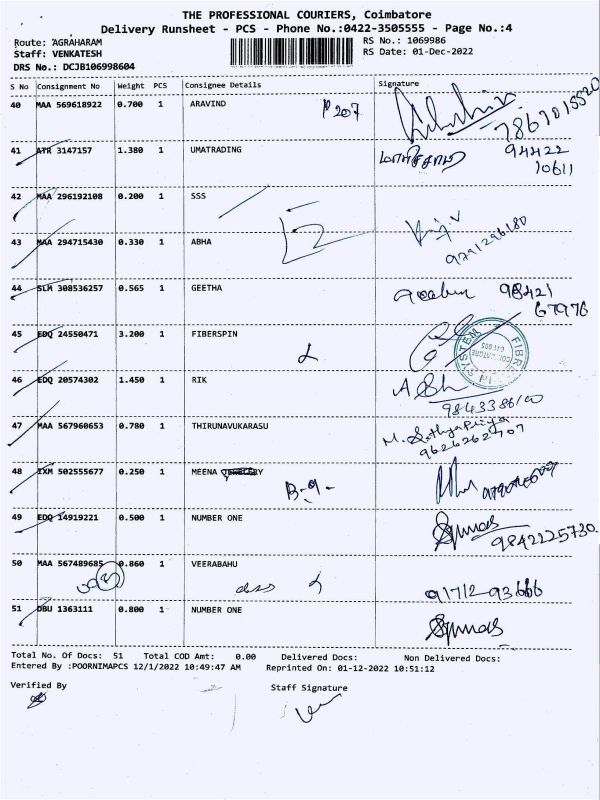 THE PROFESSIONAL COURIERS, Coimbatore
Delivery Runsheet - PCS - Phone No.:0422-3505555 - Page No.:4
Route: AGRAHARAM RS No.: 1069986
Staff: VENKATESH RS Date: 01-Dec-2022
DRS No.: DCJB106998604
S No Consignment No Weight PCS Consignee Details Signature
40 MAA 569618922 0.700 1 ARAVIND P207
41 ATR 3147157 1.380 1 UMATRADING 94422
10611
42 MAA 296192108 0.200 1 SSS
43 MAA 294715430 0.330 1 ABHA 9791296180
44 SLM 308536257 0.565 1 GEETHA 98421
67976
45 EDQ 24550471 3.200 1 FIBERSPIN
46 EDQ 20574302 1.450 1 RIK
9843386100
47 MAA 567960653 0.780 1 THIRUNAVUKARASU M. Sathyapriya
9626262707
48 IXM 502555677 0.250 1 MEENA B-9-
49 EDQ 14919221 0.500 1 NUMBER ONE
9842225730
50 MAA 567489685 0.860 1 VEERABAHU 91712-93666
51 DBU 1363111 0.800 1 NUMBER ONE
Total No. Of Docs: 51 Total COD Amt: 0.00 Delivered Docs: Non Delivered Docs:
Entered By :POORNIMAPCS 12/1/2022 10:49:47 AM Reprinted On: 01-12-2022 10:51:12
Verified By Staff Signature